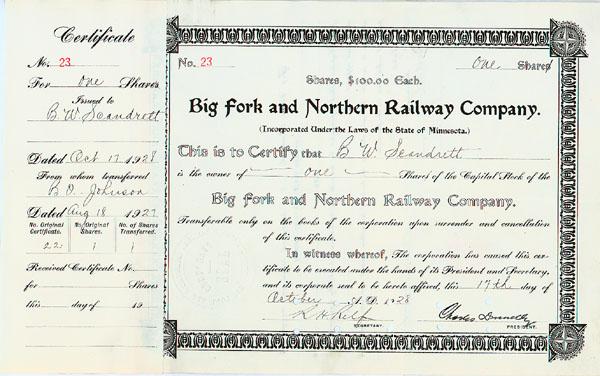 Certificate
No. 23
For one Shares
Issued to
B. W. Scandrett
Dated Oct 17 1928
From whom transferred
B. O. Johnson
Dated Aug 18 1927
No. Original Certificate. No. Original Shares. No. of Shares Transferred.
22 1 1
Received Certificate No.
for Shares
this day of 19
No. 23 One Shares
Shares, $100.00 Each.
Big Fork and Northern Railway Company.
(Incorporated Under the Laws of the State of Minnesota.)
This is to Certify that B. W. Scandrett
is the owner of one Shares of the Capital Stock of the
Big Fork and Northern Railway Company.
Transferable only on the books of the corporation upon surrender and cancellation
of this certificate.
In witness whereof, The corporation has caused this cer-
tificate to be executed under the hands of its President and Secretary,
and its corporate seal to be hereto affixed, this 17th day of
October A. D. 1928
Charles Donnelly
SECRETARY. PRESIDENT.